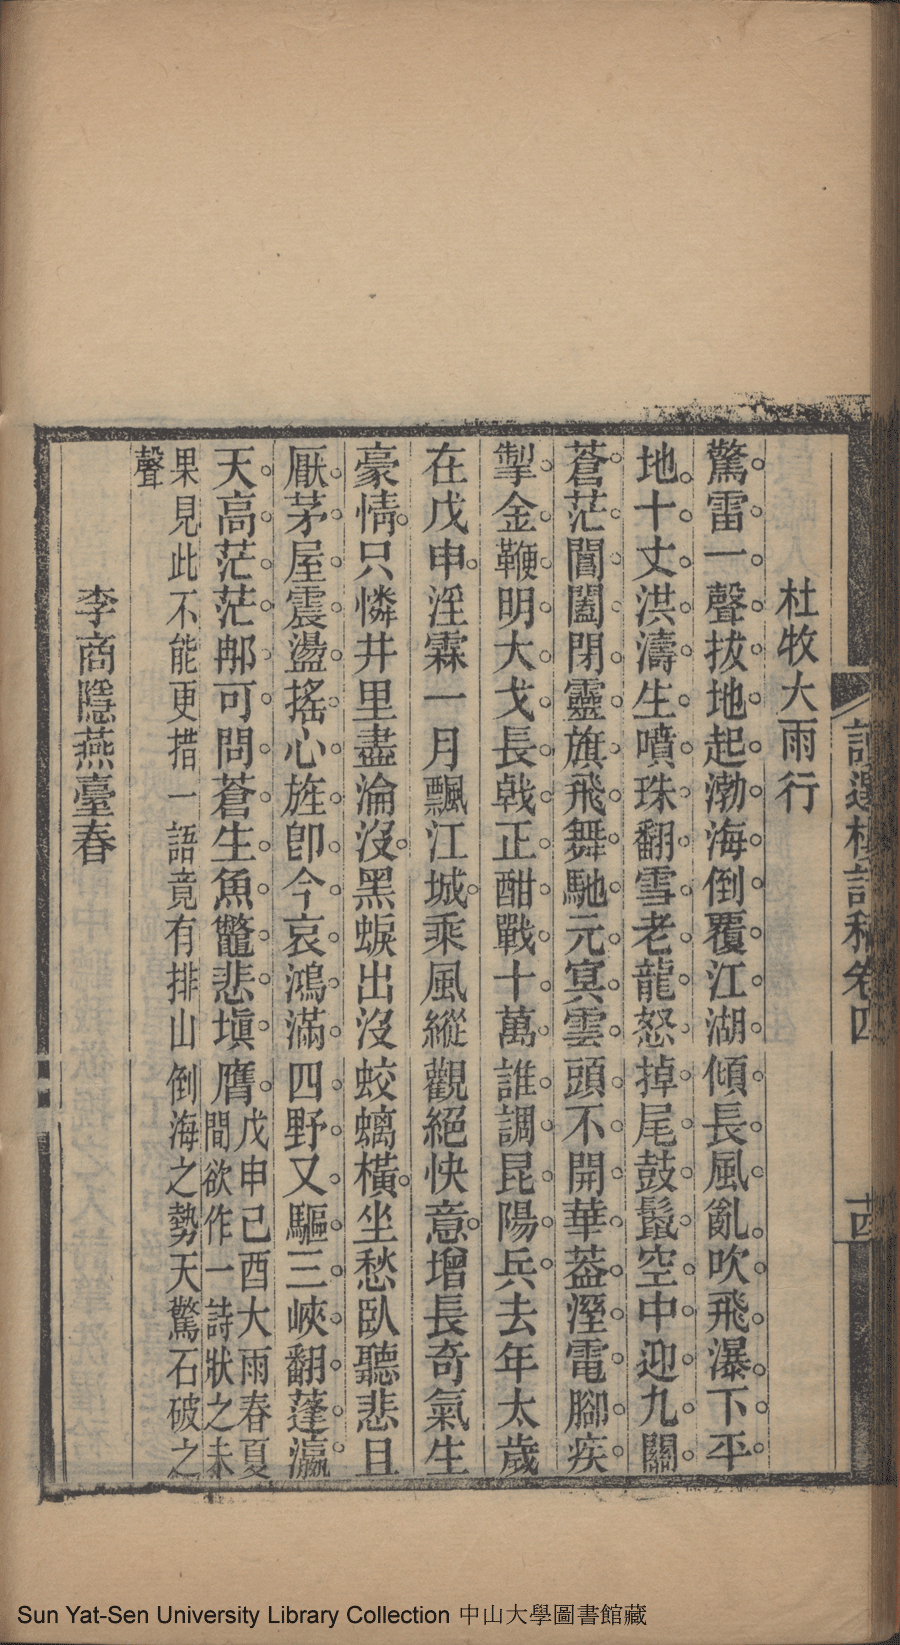 杜牧大雨行
驚雷一聲拔地起渤海倒覆江湖傾長風亂吹飛瀑下平
地十丈洪濤生噴珠翻雪老龍怒掉尾鼓鬛空中迎九關
蒼茫閶闔閉靈旗飛舞馳元冥雲頭不開華葢溼電腳疾
掣金鞭明大戈長戟正酣戰十萬誰調昆陽兵去年太歲
在戊申淫霖一月飄江城乘風縱觀絕快意增長奇氣生
豪情只憐井里盡淪沒黑蜧出沒蛟螭橫坐愁臥聽悲且
厭茅屋震盪搖心旌卽今哀鴻滿四野又驅三峽翻蓬瀛
天高茫茫那可問蒼生魚鼈悲塡膺戊申己酉大雨春夏
間欲作一詩狀之未
果見此不能更措一語竟有排山倒海之勢天驚石破之
聲
李商隱燕臺春
選樓詩稿卷四
十四
Sun Yat-Sen University Library Collection 中山大學圖書館藏